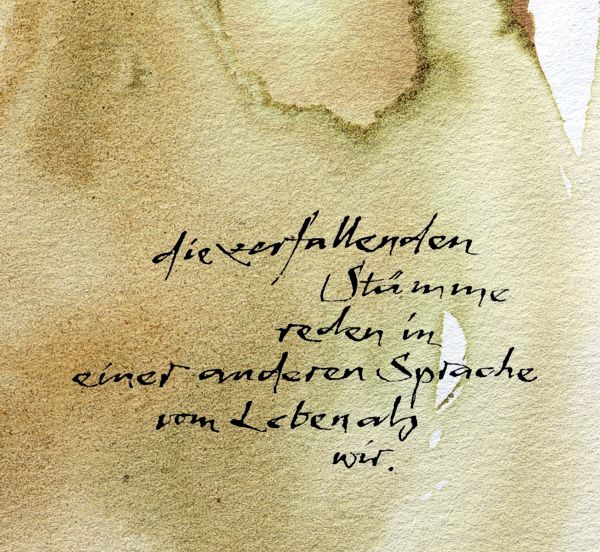 die zerfallenden
Stämme
reden in
einer anderen Sprache
vom Leben als
wir.